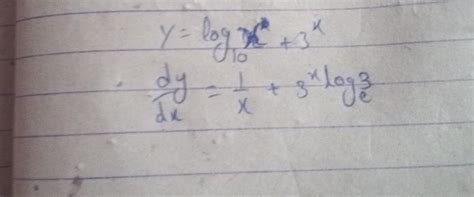 y = log₁₀x + 3ˣ
dy/dx = 1/x + 3ˣ logₑ3